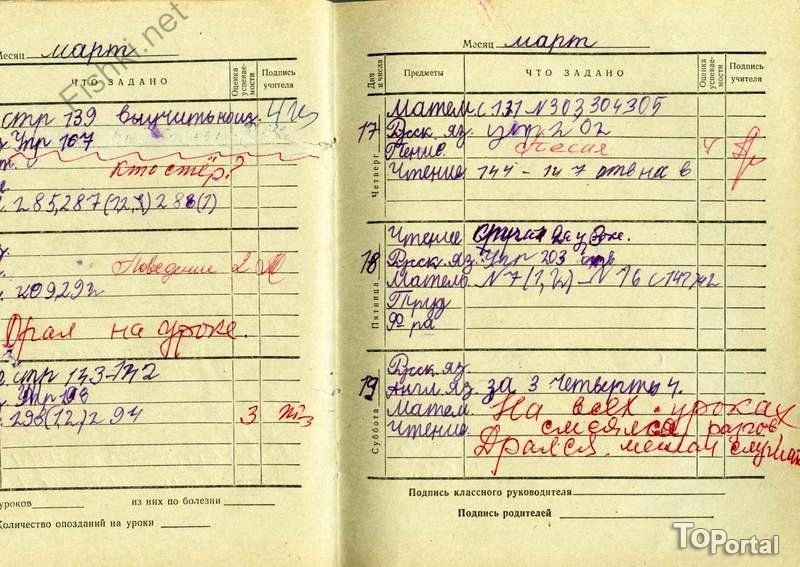 Месяц март
ЧТО ЗАДАНО
Оценка успеваемости
Подпись учителя
стр 139 выучить наиз. 4
Упр 167
Кто стёр?
285,287(12,3)288(1)
Поведение 2
209,292
Орал на уроке.
упр 143-142
Упр 198
298(12)294 3
уроков из них по болезни
Количество опозданий на уроки
Месяц март
Дни и числа
Предметы
ЧТО ЗАДАНО
Оценка успеваемости
Подпись учителя
Четверг
17
Матем с 131 N 303 304 305
Русск. яз. упр 202
Пение. Песня 4
Чтение 144-147 отв на в
Пятница
18
Чтение
Русск. яз. Упр 203
Матем N 7(1,2)-N 16 с 141 142
Труд
Ф ра
Суббота
19
Русск. яз.
Англ. яз за 3 четверть 4.
Матем. На всех уроках
Чтение смеялся, разгов
Дрался, мешал слушат
Подпись классного руководителя
Подпись родителей
Fishki.net
TOPortal